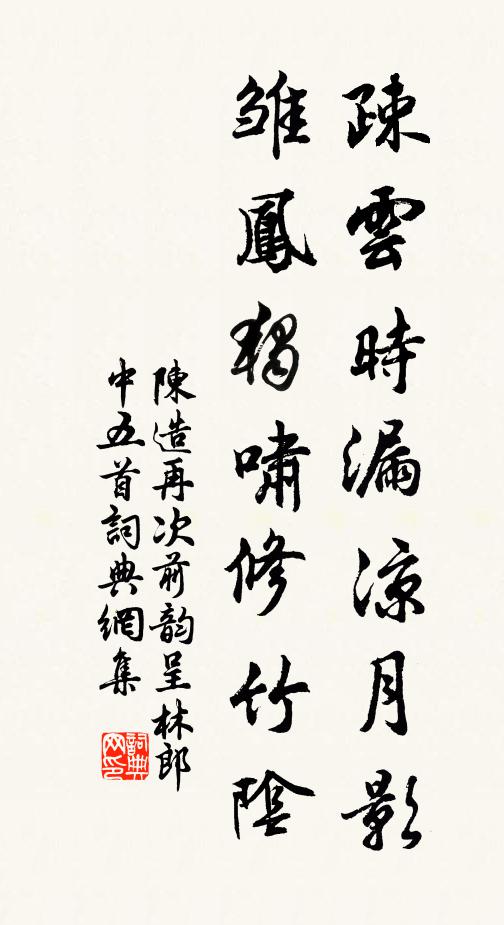 疎雲時漏凉月影
雏鳳獨嘯修竹陰
陳造再次前韵呈林郎
中五首詞典網集
詞典
网印